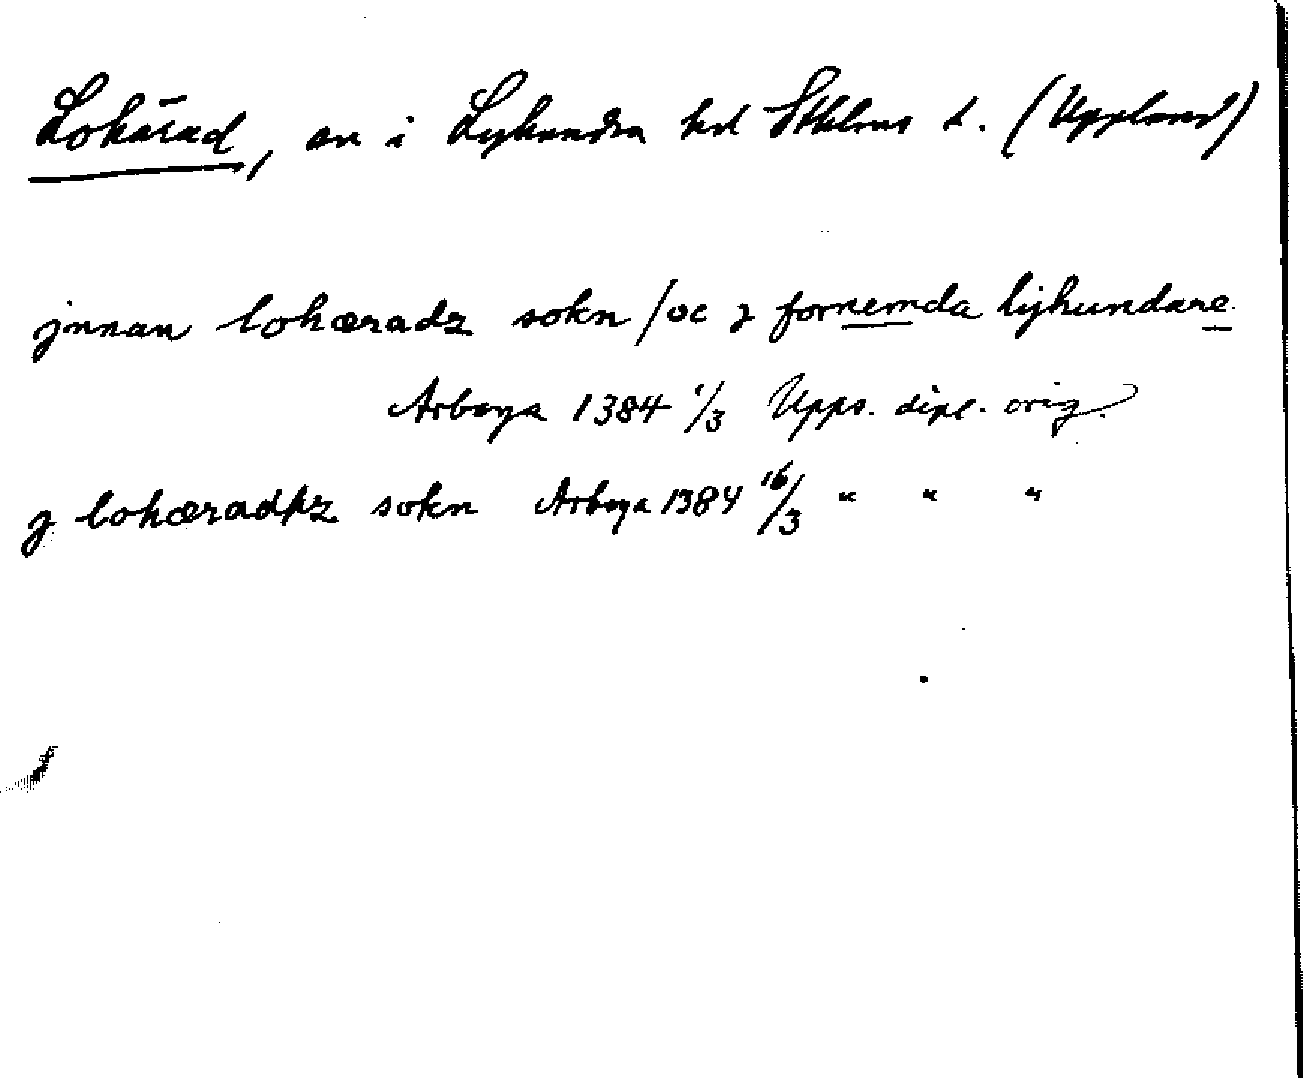 Lohärad, sn i Lyhundra hd Sthlms l. (Uppland)
jnnan lohæradz sokn /oc j fornemda lijhundare
Arboga 1384 1/3 Upps. dipl. orig.
j lohæradhz sokn Arboga 1384 16/3 " " "